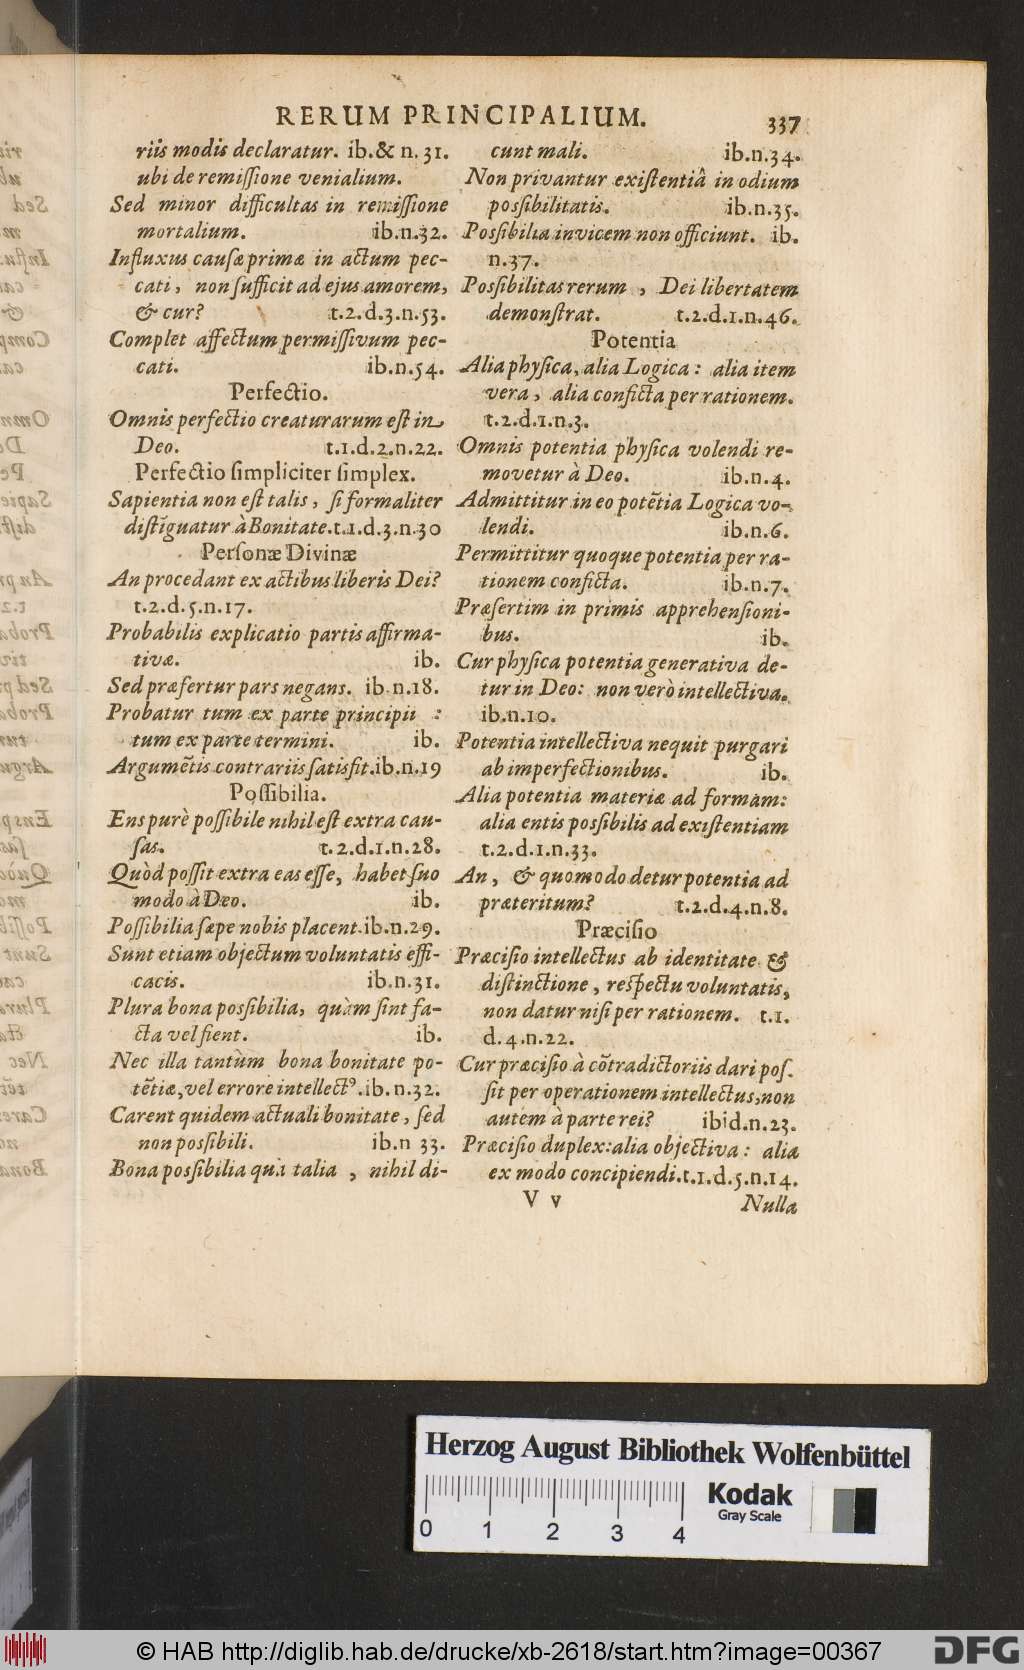 RERUM PRINCIPALIUM. 337
riis modis declaratur. ib.& n. 31.
ubi de remiſſione venialium.
Sed minor difficultas in remiſſione
mortalium. ib.n.32.
Influxus cauſæ primæ in actum pec-
cati, non ſufficit ad ejus amorem,
& cur? t.2.d.3.n.53.
Complet affectum permiſſivum pec-
cati. ib.n.54.
Perfectio.
Omnis perfectio creaturarum eſt in
Deo. t.1.d.2.n.22.
Perfectio ſimpliciter ſimplex.
Sapientia non eſt talis, ſi formaliter
diſtīguatur à Bonitate.t.1.d.3.n.30
Perſonæ Divinæ
An procedant ex actibus liberis Dei?
t.2.d.5.n.17.
Probabilis explicatio partis affirma-
tivæ. ib.
Sed præfertur pars negans. ib.n.18.
Probatur tum ex parte principii :
tum ex parte termini. ib.
Argumētis contrariis ſatisfit.ib.n.19
Poſſibilia.
Ens purè poſſibile nihil eſt extra cau-
ſas. t.2.d.1.n.28.
Quòd poſſit extra eas eſſe, habet ſuo
modo à Deo. ib.
Poſſibilia ſæpe nobis placent.ib.n.29.
Sunt etiam objectum voluntatis effi-
cacis. ib.n.31.
Plura bona poſsibilia, quàm ſint fa-
cta vel fient. ib.
Nec illa tantùm bona bonitate po-
tētiæ,vel errore intellectꝰ.ib.n.32.
Carent quidem actuali bonitate, ſed
non poſsibili. ib.n 33.
Bona poſsibilia quà talia , nihil di-
cunt mali. ib.n.34.
Non privantur exiſtentiâ in odium
poſsibilitatis. ib.n.35.
Poſsibilia invicem non officiunt. ib.
n.37.
Poſsibilitas rerum , Dei libertatem
demonſtrat. t.2.d.1.n.46.
Potentia
Alia phyſica, alia Logica: alia item
vera, alia conficta per rationem.
t.2.d.1.n.3.
Omnis potentia phyſica volendi re-
movetur à Deo. ib.n.4.
Admittitur in eo potētia Logica vo-
lendi. ib.n.6.
Permittitur quoque potentia per ra-
tionem conficta. ib.n.7.
Præſertim in primis apprehenſioni-
bus. ib.
Cur phyſica potentia generativa de-
tur in Deo: non verò intellectiva.
ib.n.10.
Potentia intellectiva nequit purgari
ab imperfectionibus. ib.
Alia potentia materiæ ad formam:
alia entis poſsibilis ad exiſtentiam
t.2.d.1.n.33.
An, & quomodo detur potentia ad
præteritum? t.2.d.4.n.8.
Præciſio
Præciſio intellectus ab identitate &
diſtinctione, reſpectu voluntatis,
non datur niſi per rationem. t.1.
d.4.n.22.
Cur præciſio à cōtradictoriis dari poſ-
ſit per operationem intellectus,non
autem à parte rei? ibid.n.23.
Præciſio duplex:alia objectiva: alia
ex modo concipiendi.t.1.d.5.n.14.
V v Nulla
Herzog August Bibliothek Wolfenbüttel
0 1 2 3 4
Kodak
Gray Scale
© HAB http://diglib.hab.de/drucke/xb-2618/start.htm?image=00367
DFG